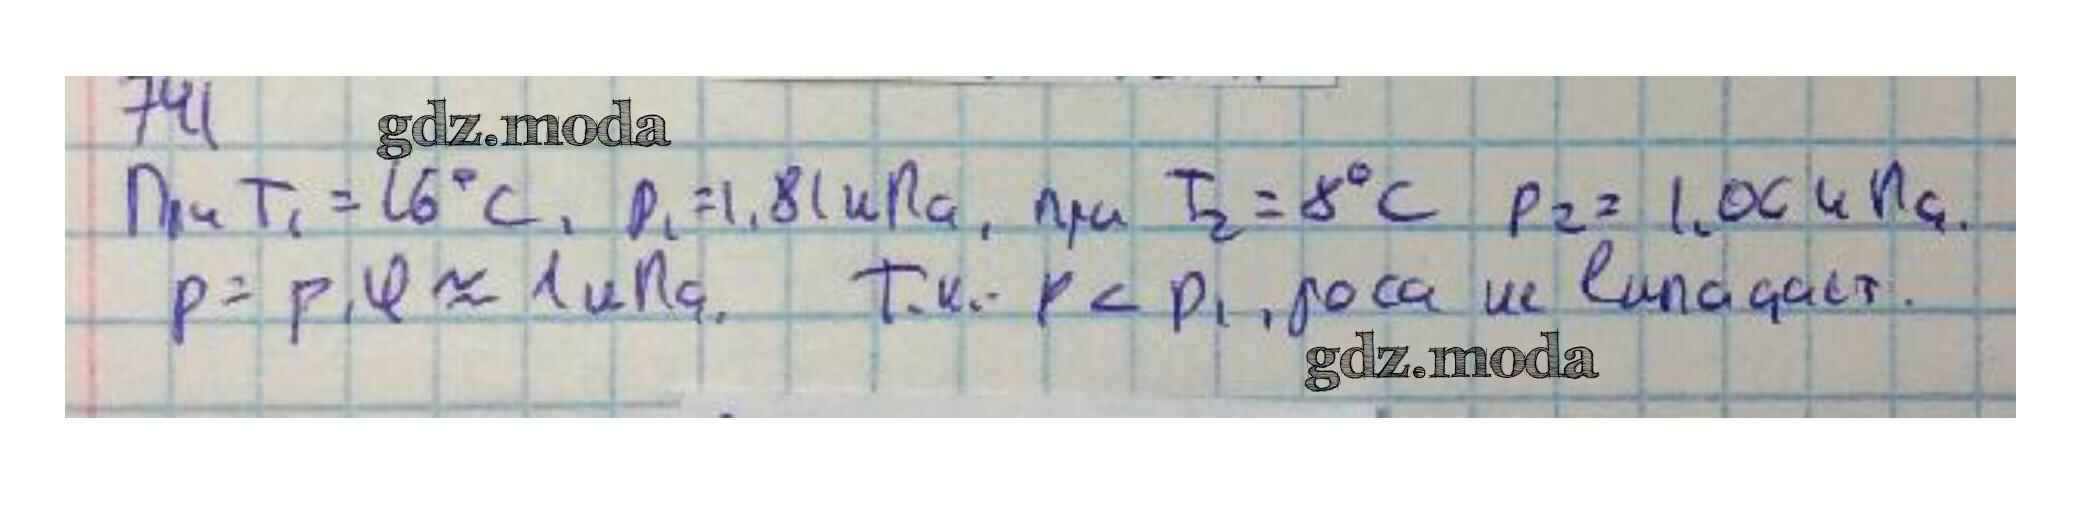 741
gdz.moda
При T₁ = 16°C, p₁ = 1,81 кПа, при T₂ = 8°C p₂ = 1,06 кПа.
p = p₁φ ≈ 1 кПа. Т.к. p < p₁, роса не выпадает.
gdz.moda